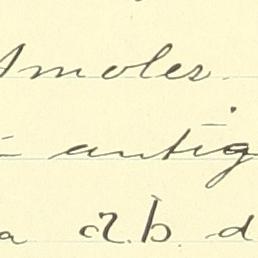 Amoles.
antig
a A.b. d